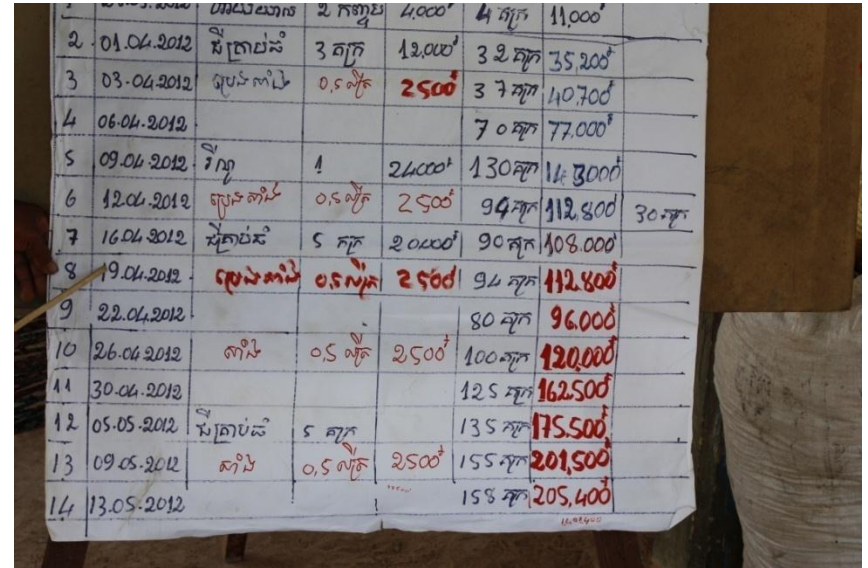 2 កញ្ចប់ 4.000៛ 4 គក្រ 11,000៛
2 01.04.2012 ជីគ្រាប់ធំ 3 គក្រ 12,000៛ 32 គក្រ 35,200៛
3 03.04.2012 ប្រេងតាំង 0,5 លីត្រ 2500៛ 37 គក្រ 40,700៛
4 06.04.2012 70 គក្រ 77.000៛
5 09.04.2012 1 24000៛ 130 គក្រ 143000៛
6 12.04.2012 ប្រេងតាំង 0,5 លីត្រ 2500៛ 94 គក្រ 112,800៛ 30 គក្រ
7 16.04.2012 ជីគ្រាប់ធំ 5 គក្រ 20,000៛ 90 គក្រ 108.000៛
8 19.04.2012 ប្រេងតាំង 0,5 លីត្រ 2500៛ 94 គក្រ 112.800៛
9 22.04.2012 80 គក្រ 96.000៛
10 26.04.2012 តាំង 0,5 លីត្រ 2500៛ 100 គក្រ 120,000៛
11 30.04.2012 125 គក្រ 162.500៛
12 05.05.2012 ជីគ្រាប់ធំ 5 គក្រ 135 គក្រ 175.500៛
13 09.05.2012 តាំង 0,5 លីត្រ 2500៛ 155 គក្រ 201,500៛
14 13.05.2012 158 គក្រ 205,400៛